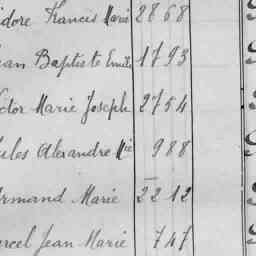 idore Francis Marie 2868
ean Baptiste Emile 1793
ctor Marie Joseph 2754
ules Alexandre Mie 988
Armand Marie 2212
arcel Jean Marie 747